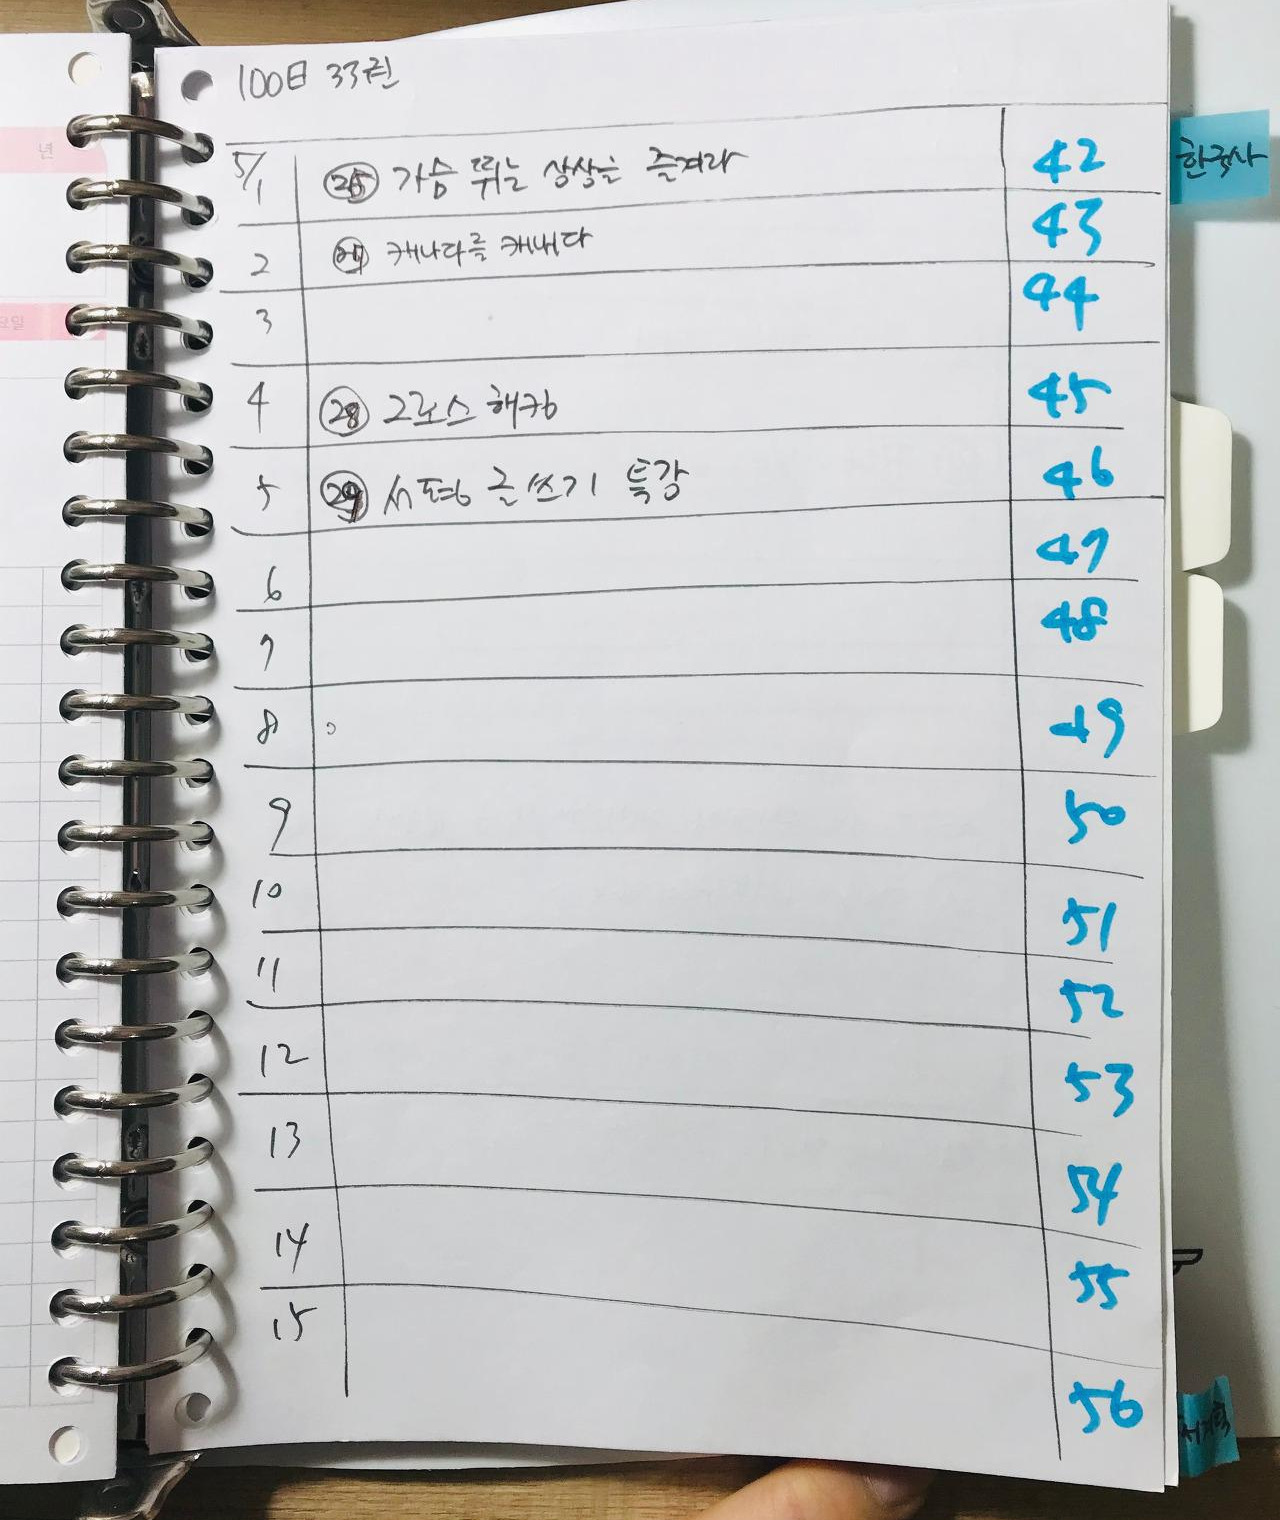 100日 33권
한국사
5/1 가슴 뛰는 상상을 즐겨라 42
2 캐나다를 캐내다 43
3 44
4 28 그로스 해킹 45
5 29 서평 글쓰기 특강 46
6 47
7 48
8 49
9 50
10 51
11 52
12 53
13 54
14 55
15 56
년
요일